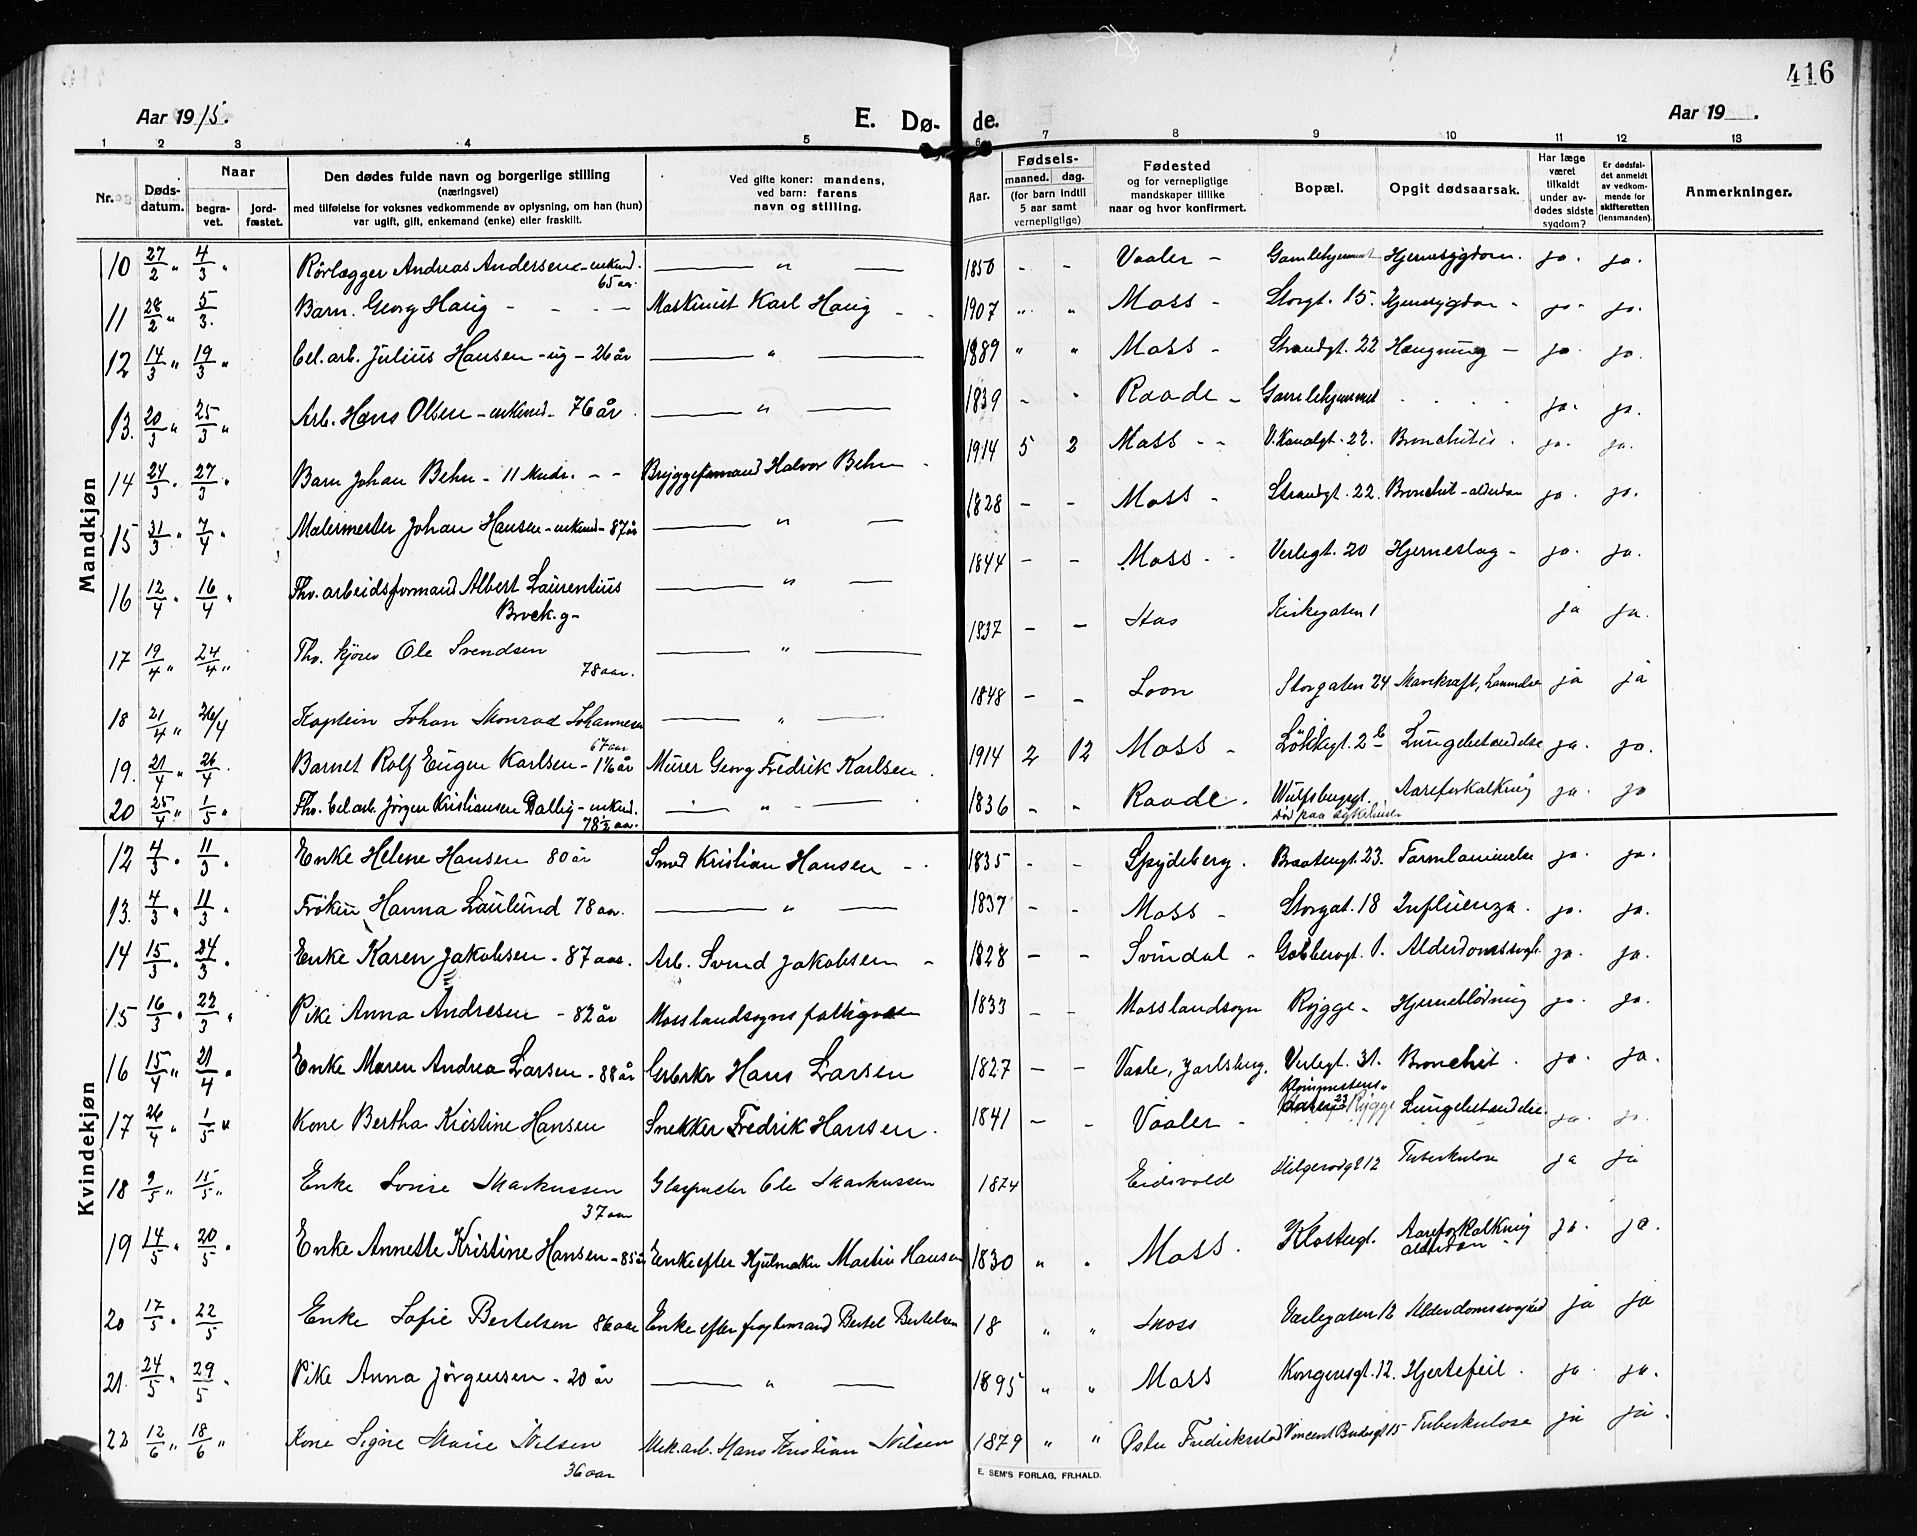 416
Aar 1915.
E. Dø- de.
Aar 19 .
1 2 3 4 5 6 7 8 9 10 11 12 13
Nr. Døds-datum. Naar begra-vet. jord-fæstet. Den dødes fulde navn og borgerlige stilling (næringsvei) med tilføielse for voksnes vedkommende av oplysning, om han (hun) var ugift, gift, enkemand (enke) eller fraskilt. Ved gifte koner: mandens, ved barn: farens navn og stilling. Aar. Fødsels- maaned. dag. (for barn indtil 5 aar samt vernepligtige) Fødested og for vernepligtige mandskaper tillike naar og hvor konfirmert. Bopæl. Opgit dødsaarsak. Har læge været tilkaldt under av-dødes sidste sygdom? Er dødsfal-det anmeldt av vedkom-mende for skifteretten (lensmanden). Anmerkninger.
Mandkjøn
10 27/2 " 4/3 " Rørlægger Andreas Andersen - enkemd. 65 aar. — " — 1850 - - Vaaler - Gamlehjemmet Hjernesygdom. ja. ja.
11 28/2 " 5/3. Barn. Georg Haug - - - Maskinist Karl Haug - - 1907 " " Moss - Storgt. 15. Hjernesygdom - ja - ja.
12 14/3 " 19/3 " Cel. arb. Julius Hansen - ug - 26 år — " — 1889 " " Moss - Strandgt. 22 Hængning - ja. ja.
13. 20/3 " 25/3 " Arb. Hans Olsen - enkemd - 76 år. — " — 1839 - " Raade - Gamlehjemmet . . . . ja. ja.
14 24/3 . 27/3 . Barn Johan Behn - 11 Mndr. - - Bryggeformand Halvor Behn - 1914 5 2 Moss - - V. Kanalgt. 22. Bronchitis. ja. ja.
15 31/3 " 7/4 " Malermester Johan Hansen - enkemd - 87 år — " — 1828 - - Moss - Strandgt. 22. Bronchit - alderdom ja. ja.
16 12/4 " 16/4 " Fhv. arbeidsformand Albert Laurentius Brock. g - — " — 1844 - - Moss - - Verlegt. 20 Hjerneslag - ja. ja.
17 19/4 " 24/4 " Fhv. kjører Ole Svendsen 78 aar. — " — 1837 - - Kirkegaten 1 ja ja.
18 21/4 " 26/4 Kaptein Johan Monrad Johannesen 67 aar — " — 1848 - - Soon Storgaten 24 ja ja
19. 21/4 " 26/4 . Barnet Rolf Eugen Karlsen - 1 1/6 år Murer Georg Fredrik Karlsen. 1914 2 12 Moss - Løkkegt. 2 b Lungebetændelse ja. ja.
20 25/4 " 1/5 " Fhv. Cel. arb. Jørgen Kristiansen Dalby - enkemd. 78 1/2 aar. — " — 1836 - - Raade. Wulfsbergsgt. død paa sykehuset Aareforkalkning ja. ja
Kvindekjøn
12 4/3 . 11/3 . Enke Helene Hansen 80 år Smed Kristian Hansen - . 1835 - - Spydeberg. Braatengt. 23. Tarmlammelse ja. ja.
13. 4/3 " 11/3 . Frøken Hanna Laulund 78 aar. — " — 1837 - - Moss - Storgat. 18 Influenza. ja. ja.
14 15/3 . 24/3 . Enke Karen Jakobsen - 87 aar. Arb. Svend Jakobsen - 1828 - - Svindal - Gobbergt. 1. Alderdomssvagh. ja. ja.
15 16/3 " 22/3 . Pike Anna Andresen - 82 år Moss landsogns fattigvæsen 1833 - - Moss landsogn Rygge - Hjerneblødning ja. ja.
16 15/4 " 21/4 . Enke Maren Andrea Larsen - 88 år Hans Larsen 1827 - - Vaale, Jarlsberg. Verlegt. 31. Bronchit. ja. ja.
17 26/4 " 1/5 " Kone Bertha Kristine Hansen Snekker Fredrik Hansen. 1841 - - Vaaler - Rygge Lungebetændelse ja. ja.
18 9/5 " 15/5 " Enke Lovise Markussen 37 aar Glaspuster Ole Markussen 1874 Eidsvold Helgerødgt 12 Tuberkulose ja ja
19 14/5 " 20/5 . Enke Annette Kristine Hansen - 85 år Enke efter Hjulmaker Martin Hansen 1830 " . Moss. Klostergt. Aareforkalkning alderdom ja. ja.
20 17/5 . 22/5 Enke Sofie Bertelsen 86 aar Enke efter Bertel Bertelsen 18 " " Moss Varlegaten 12 Alderdomssvaghed ja ja
21. 24/5 . 29/5 . Pike Anna Jørgensen - 20 år — " — 1895 " " Moss Kongensgt. 12. Hjertefeil. ja. ja.
22 12/6 " 18/6 " Kone Signe Marie Nilsen 36 aar Mek. arb. Hans Kristian Nilsen 1879 " " Østre Fredrikstad Vincent Budsgt 15 Tuberkulose ja ja.
E. SEM'S FORLAG, FR.HALD.